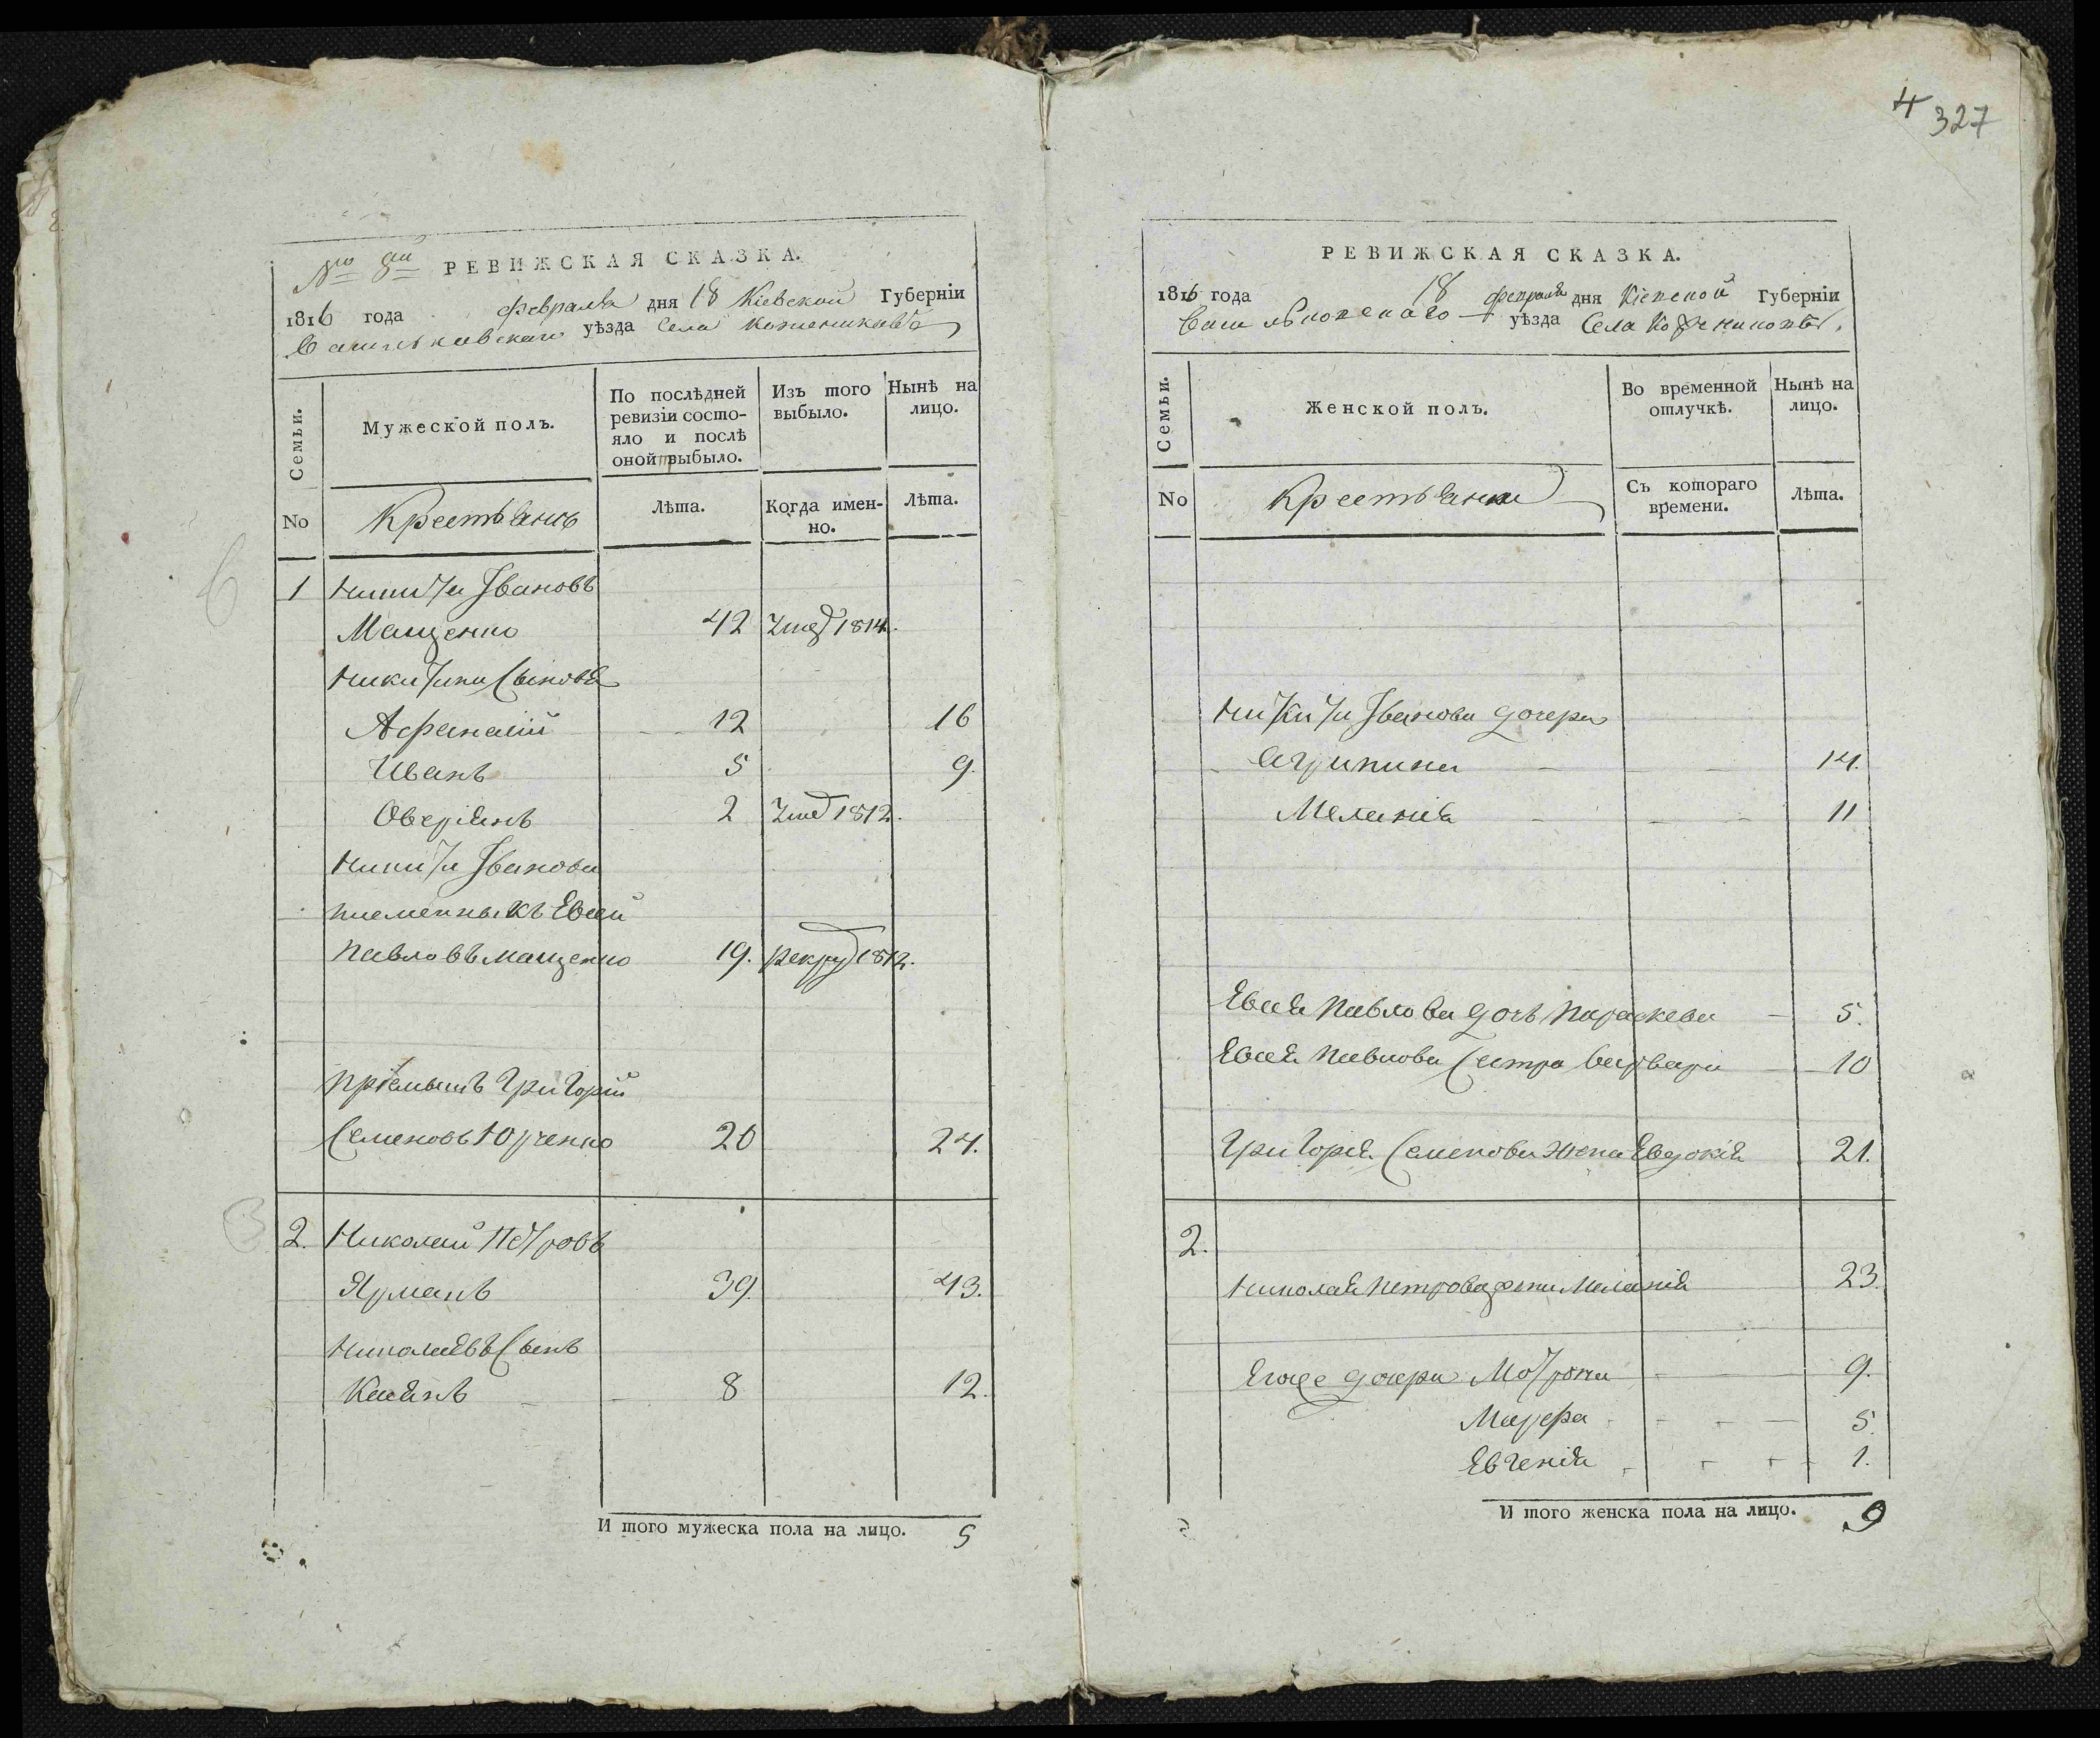 РЕВИЖСКАЯ СКАЗКА.
1816 года февраля дня 18 Кіевской Губерніи
уѣзда Села
Семьи.
Мужеской полъ.
По послѣдней ревизіи состо-
яло и послѣ
оной выбыло.
Изъ того
выбыло.
Нынѣ на
лицо.
No
Крестьянъ
Лѣта.
Когда имен-
но.
Лѣта.
1 Никита Ивановъ
Мащенко 42 1814.
Никитины Сыновья
Афанасій 12 16
Иванъ 5 9.
Оверіянъ 2 1812.
Никиты Иванова
племенныкъ Евсей
Павловъ Мащенко 19. рекру 1812.
пріемышъ Григорій
Семеновъ Юрченко 20 24.
2. Николай Петровъ
39. 43.
Николаевъ Сынъ
Касянъ 8 12.
И того мужеска пола на лицо. 5
4 327
РЕВИЖСКАЯ СКАЗКА.
1816 года 18 февраля дня Кіевской Губерніи
уѣзда Села
Семьи.
Женской полъ.
Во временной
отлучкѣ.
Нынѣ на
лицо.
No
Крестьянки
Съ котораго
времени.
Лѣта.
Никиты Иванова дочери
Агрипина 14.
Меланія 11
Евсея Павлова дочь Параскева 5.
Евсея Павлова Сестра Варвара 10
Григорія Семенова жена Евдокія 21.
2.
Николая Петрова жена Меланія 23.
Егоже дочери Мотрона 9.
Марфа 5.
Евгенія 1.
И того женска пола на лицо. 9